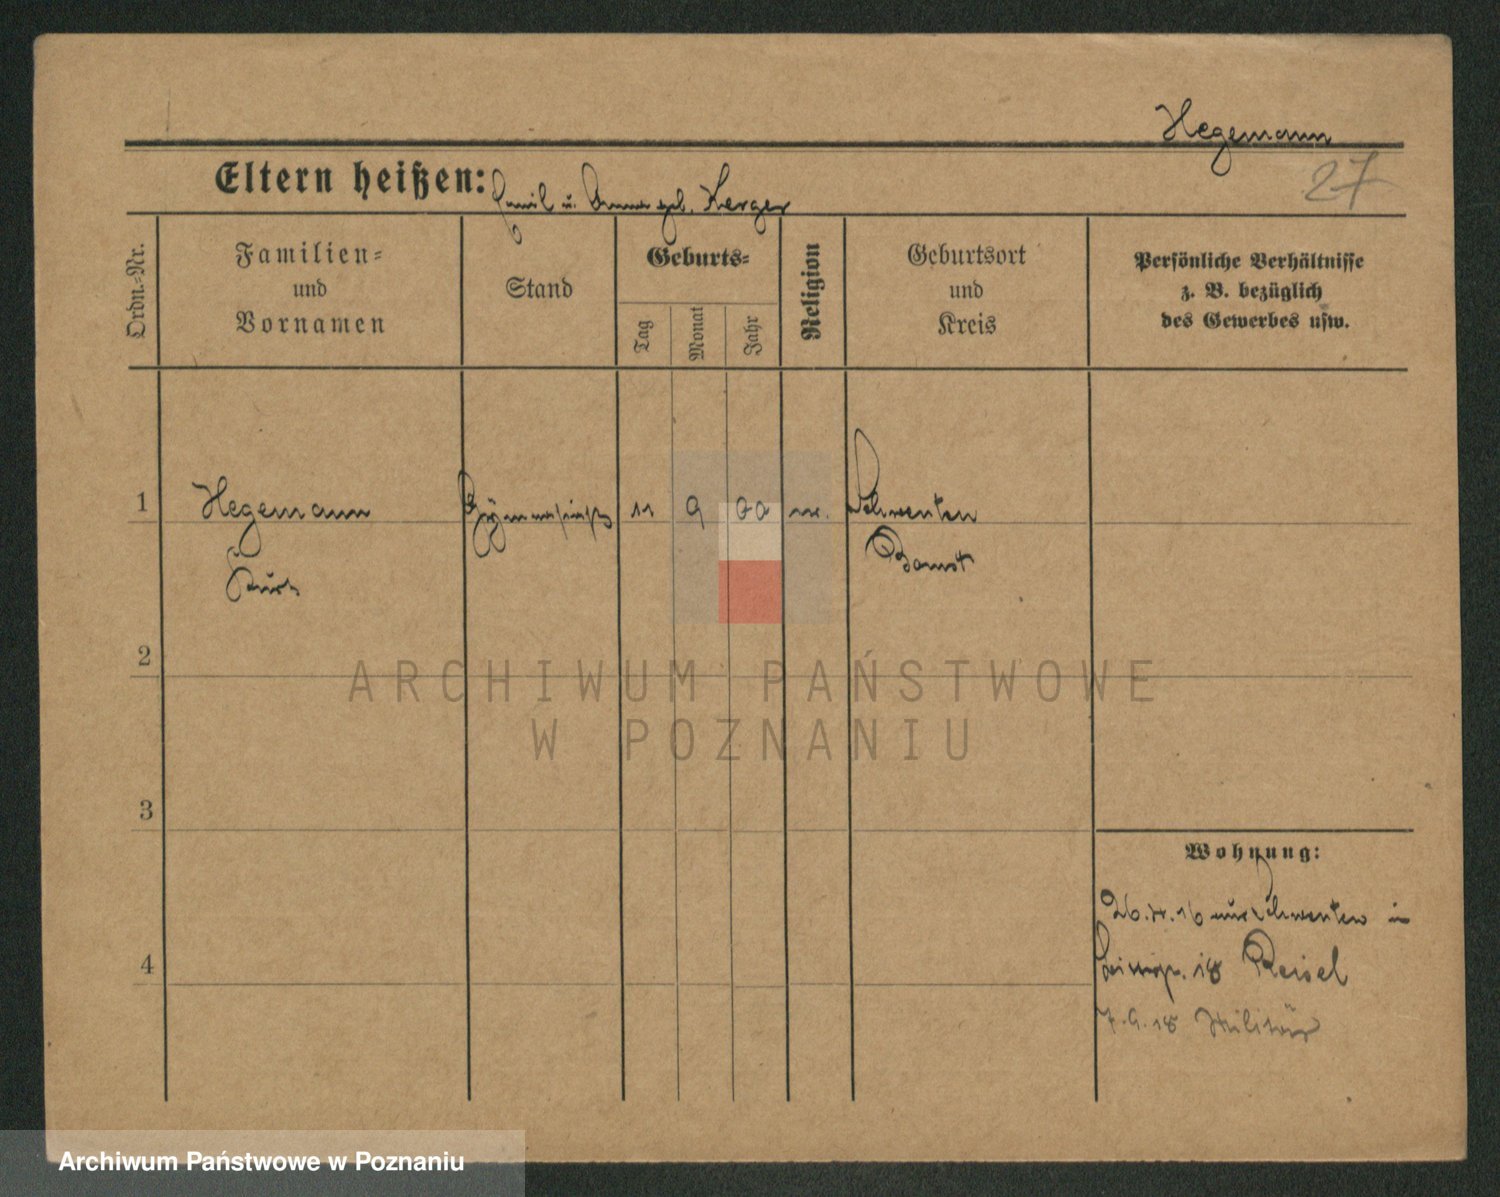 Hegemann
27
Eltern heißen: Emil u. Anna geb. Kerger
Ordn.-Nr.
Familien-
und
Vornamen
Stand
Geburts-
Tag
Monat
Jahr
Religion
Geburtsort
und
Kreis
Persönliche Verhältnisse
z. B. bezüglich
des Gewerbes usw.
1
Hegemann
Kurt
Gymnasiast
11
9
00
ev.
Schwenten
Bomst
2
3
4
Wohnung:
26. 4. 16 aus Schwenten in
18 Reisel
7. 9. 18 Militär
ARCHIWUM PAŃSTWOWE
W POZNANIU
Archiwum Państwowe w Poznaniu